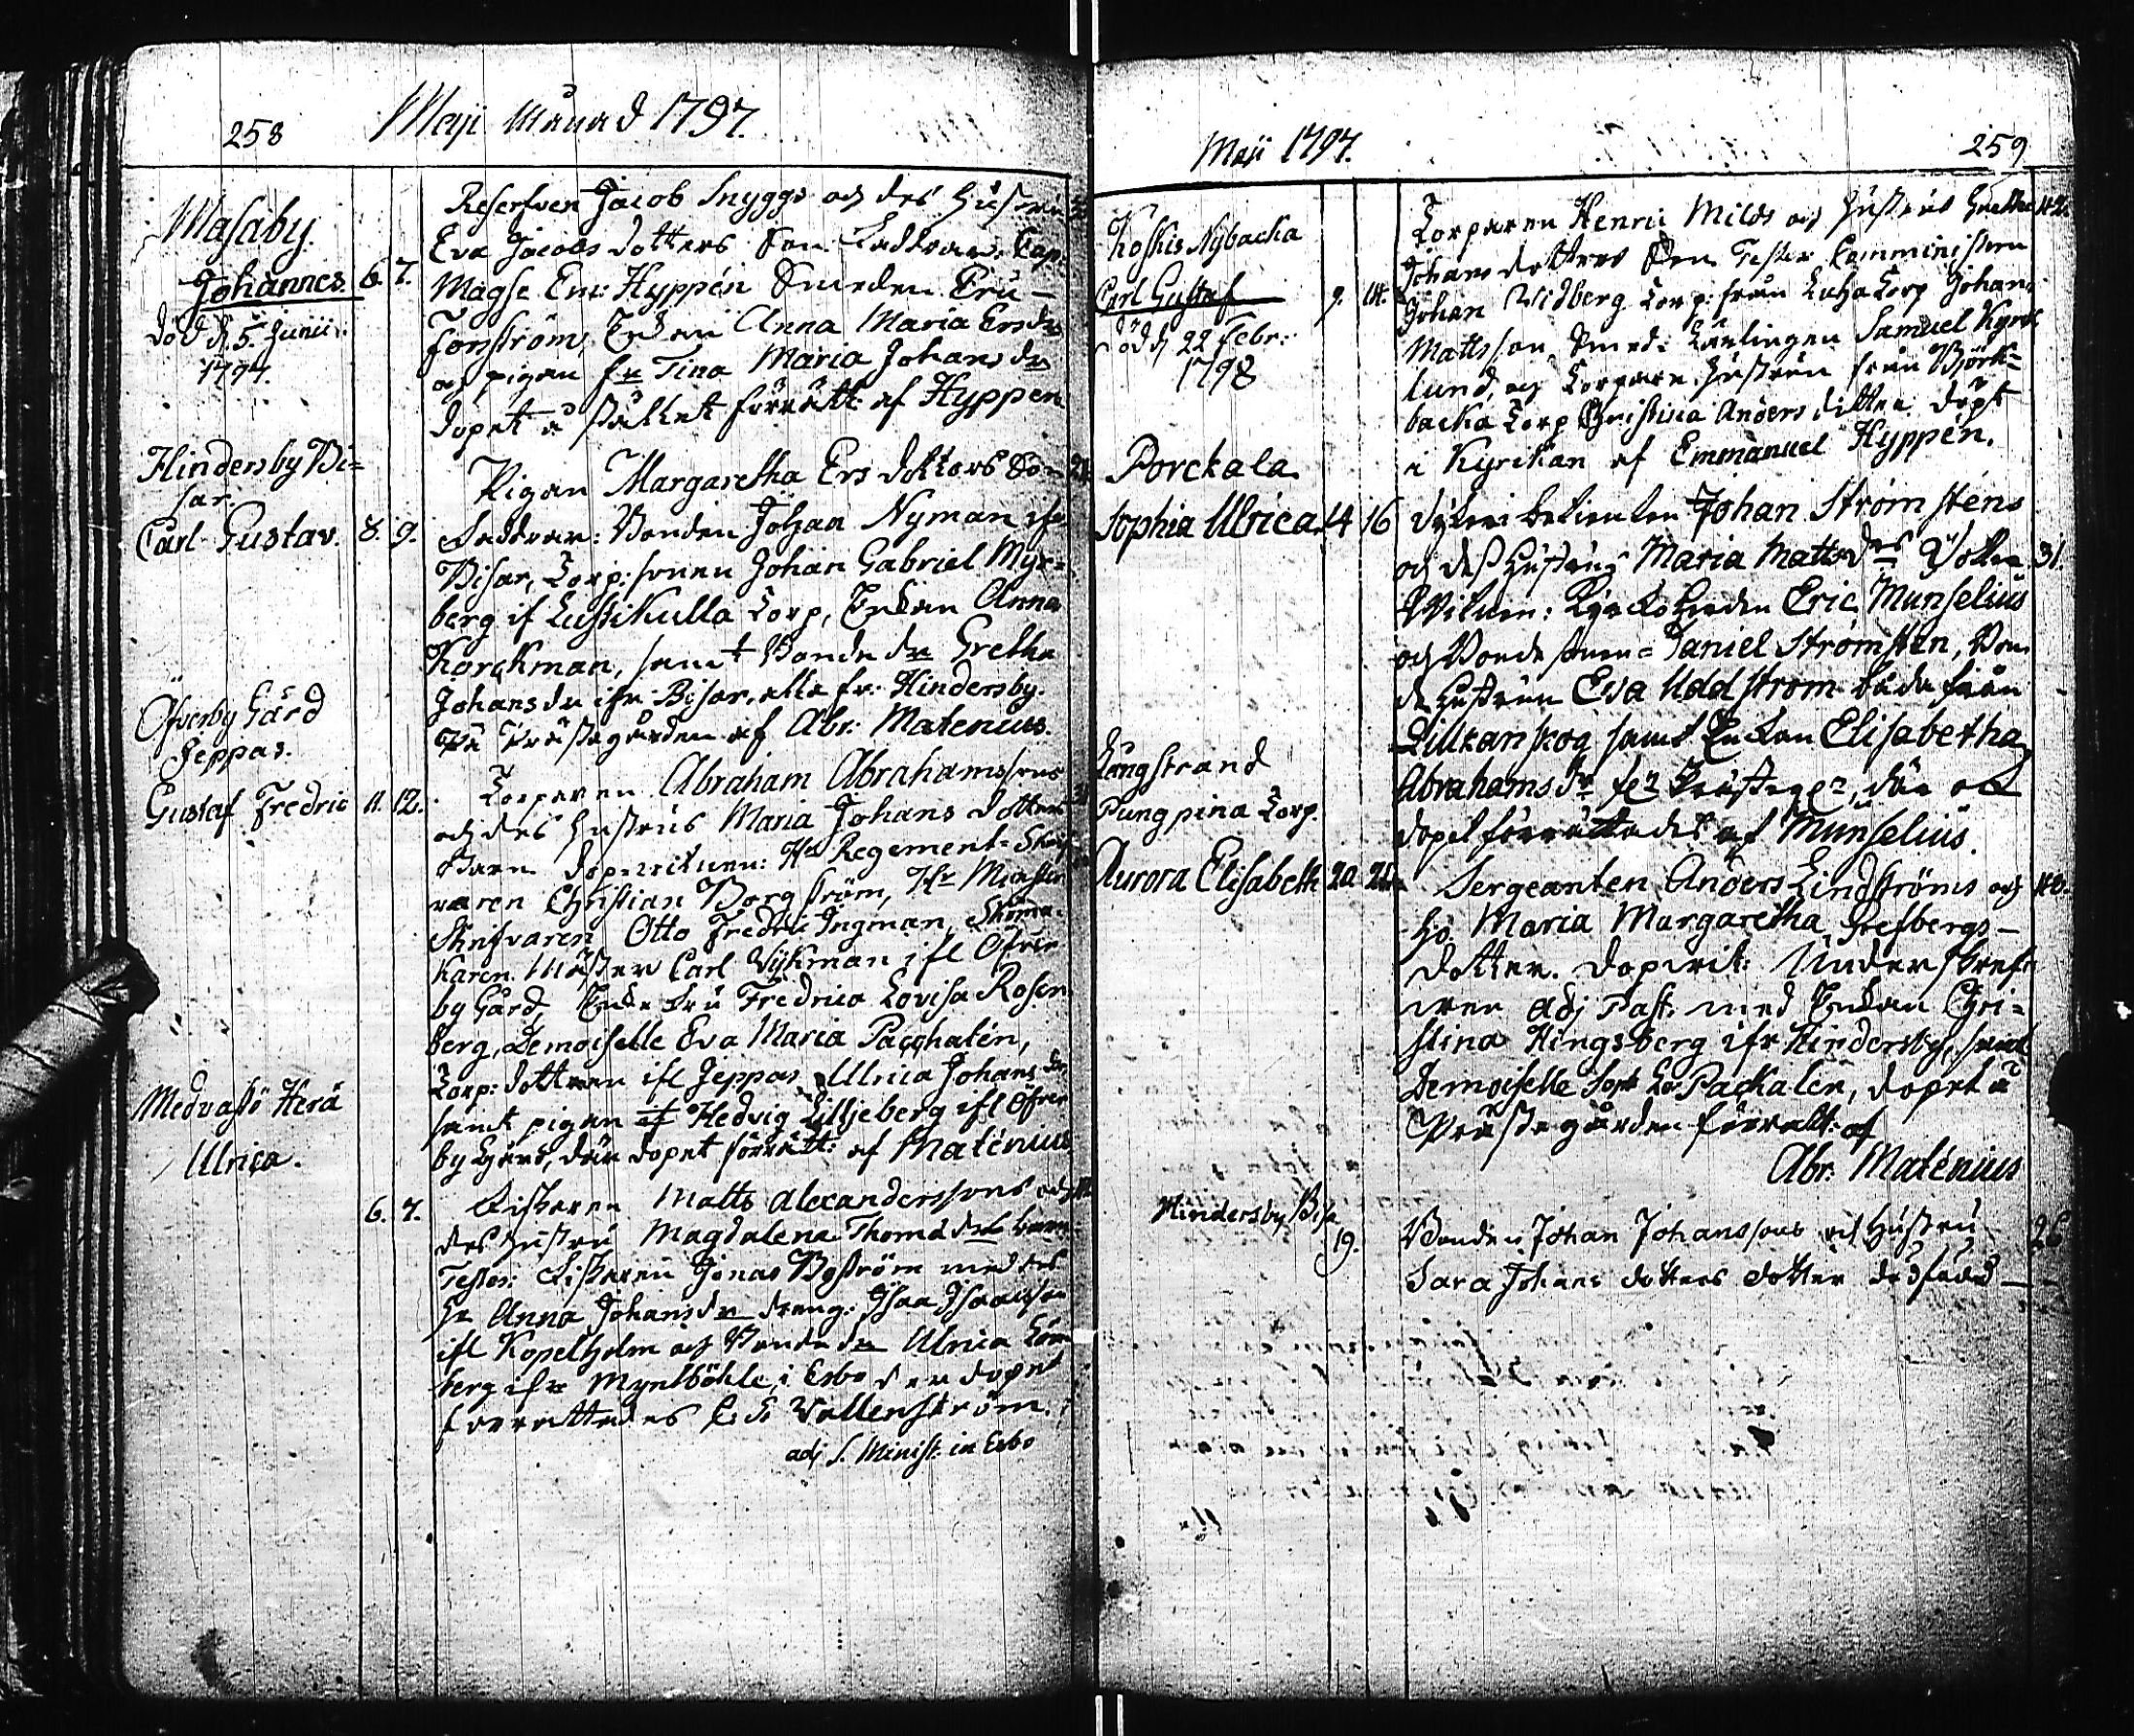 258 Maji Månad 1797.
Masaby.
Johannes. 6. 7.
död d. 5. Junii
1797.
Reserfven Jacob Snyggs och des Hustru
Eva Jacobs dotters Son. Faddrar: Cap.
Magse Em: Hyppén Smeden Eric
Forsström, Enkan Anna Maria Ersdr
och pigan fr Tina Maria Johans dr
dopet å stället förrätt: af Hyppén
Hindersby Bi=
sar.
Carl Gustav. 8. 9.
Pigan Margaretha Ers dotters Son
Faddrar: Bonden Johan Nyman ifr
Bisar, Torp: sonen Johan Gabriel Myr=
berg if Lustikulla Torp, Enkan Anna
Korckman, samt Bonde dr Gretha
Johansdr ifr Bisar, alla fr. Hindersby.
På Prästegården af Abr: Matenius.
Öfverby Gård
Jeppas.
Gustaf Fredric 11. 12.
Torparen Abraham Abrahamssons
och des hustrus Maria Johans dotters
Barn dopvittnen: Hr Regements-Skrif
varen Christian Borgström, Hr Mönster
Skrifvaren Otto Fredric Ingman, Skoma-
karen Mäster Carl Vykman ifr Öfver
by Gård, Enke fru Fredrica Lovisa Rosen
berg, Demoiselle Eva Maria Pacchalén,
Torp: dottren ifr Jeppas Ulrica Johans dr
samt pigan Hedvig Lilljeberg ifr Öfver
by Gård, där dopet förrätt: af Maténius
Medvastö Herå
Ulrica.
6. 7.
Fiskaren Matts Alexanderssons och
des hustru Magdalena Thomæ drs barn
Testes: Fiskaren Jonas Boström med des
hu Anna Johansdr dräng: Isaac Isaacsson
ifr Kopelholm och Bonde dr Ulrica Lön
berg ifr Mynlböhle i Esbo der dopet
förrättades C. E. Wallenström.
adj S. Minist: in Esbo
Maji 1797. 259
Koskis Nybacka
Carl Gustaf 9. 14.
död d 22 Febr:
1798
Torparen Henric Milds och hustrus Gretha 42.
Johans dotters Son Testes Comministern
Johan Widberg Torp: från Luhatorp Johan
Mattsson, Smeds Lärlingen Samuel Kyrk
lund, och Torpare hustrun från Björk=
backa Torp Christina Anders dotter. döpt
i Kyrckan af Emmanuel Hyppén.
Porckala
Sophia Ulrica 14 16
Johan Strömstens
och des hustrus Maria Mattsdrs dotter 31.
Eric Munselius
och Bondesonen Daniel Strömsten, Bon
de hustrun Eva Uddström båda från
Lillkanskog samt Enkan Elisabetha
Abrahamsdr där ock
dopet förrättades af Munselius.
Långstrand
Pungpina Torp.
Aurora Elisabeth 20
Sergeanten Anders Lindströms och 40.
Hu Maria Margaretha Grefbergs-
dotter. Dopvit: Underskref=
wen Adj Past: med Enkan Chri=
stina Kingsberg ifr Hindersby, samt
Demoiselle Packalén, dopet å
Prästegården förrätt: af
Abr: Maténius
Hindersby Bisa
19.
Bonden Johan Johanssons och hustru 26
Sara Johans dotters dotter dödfödd